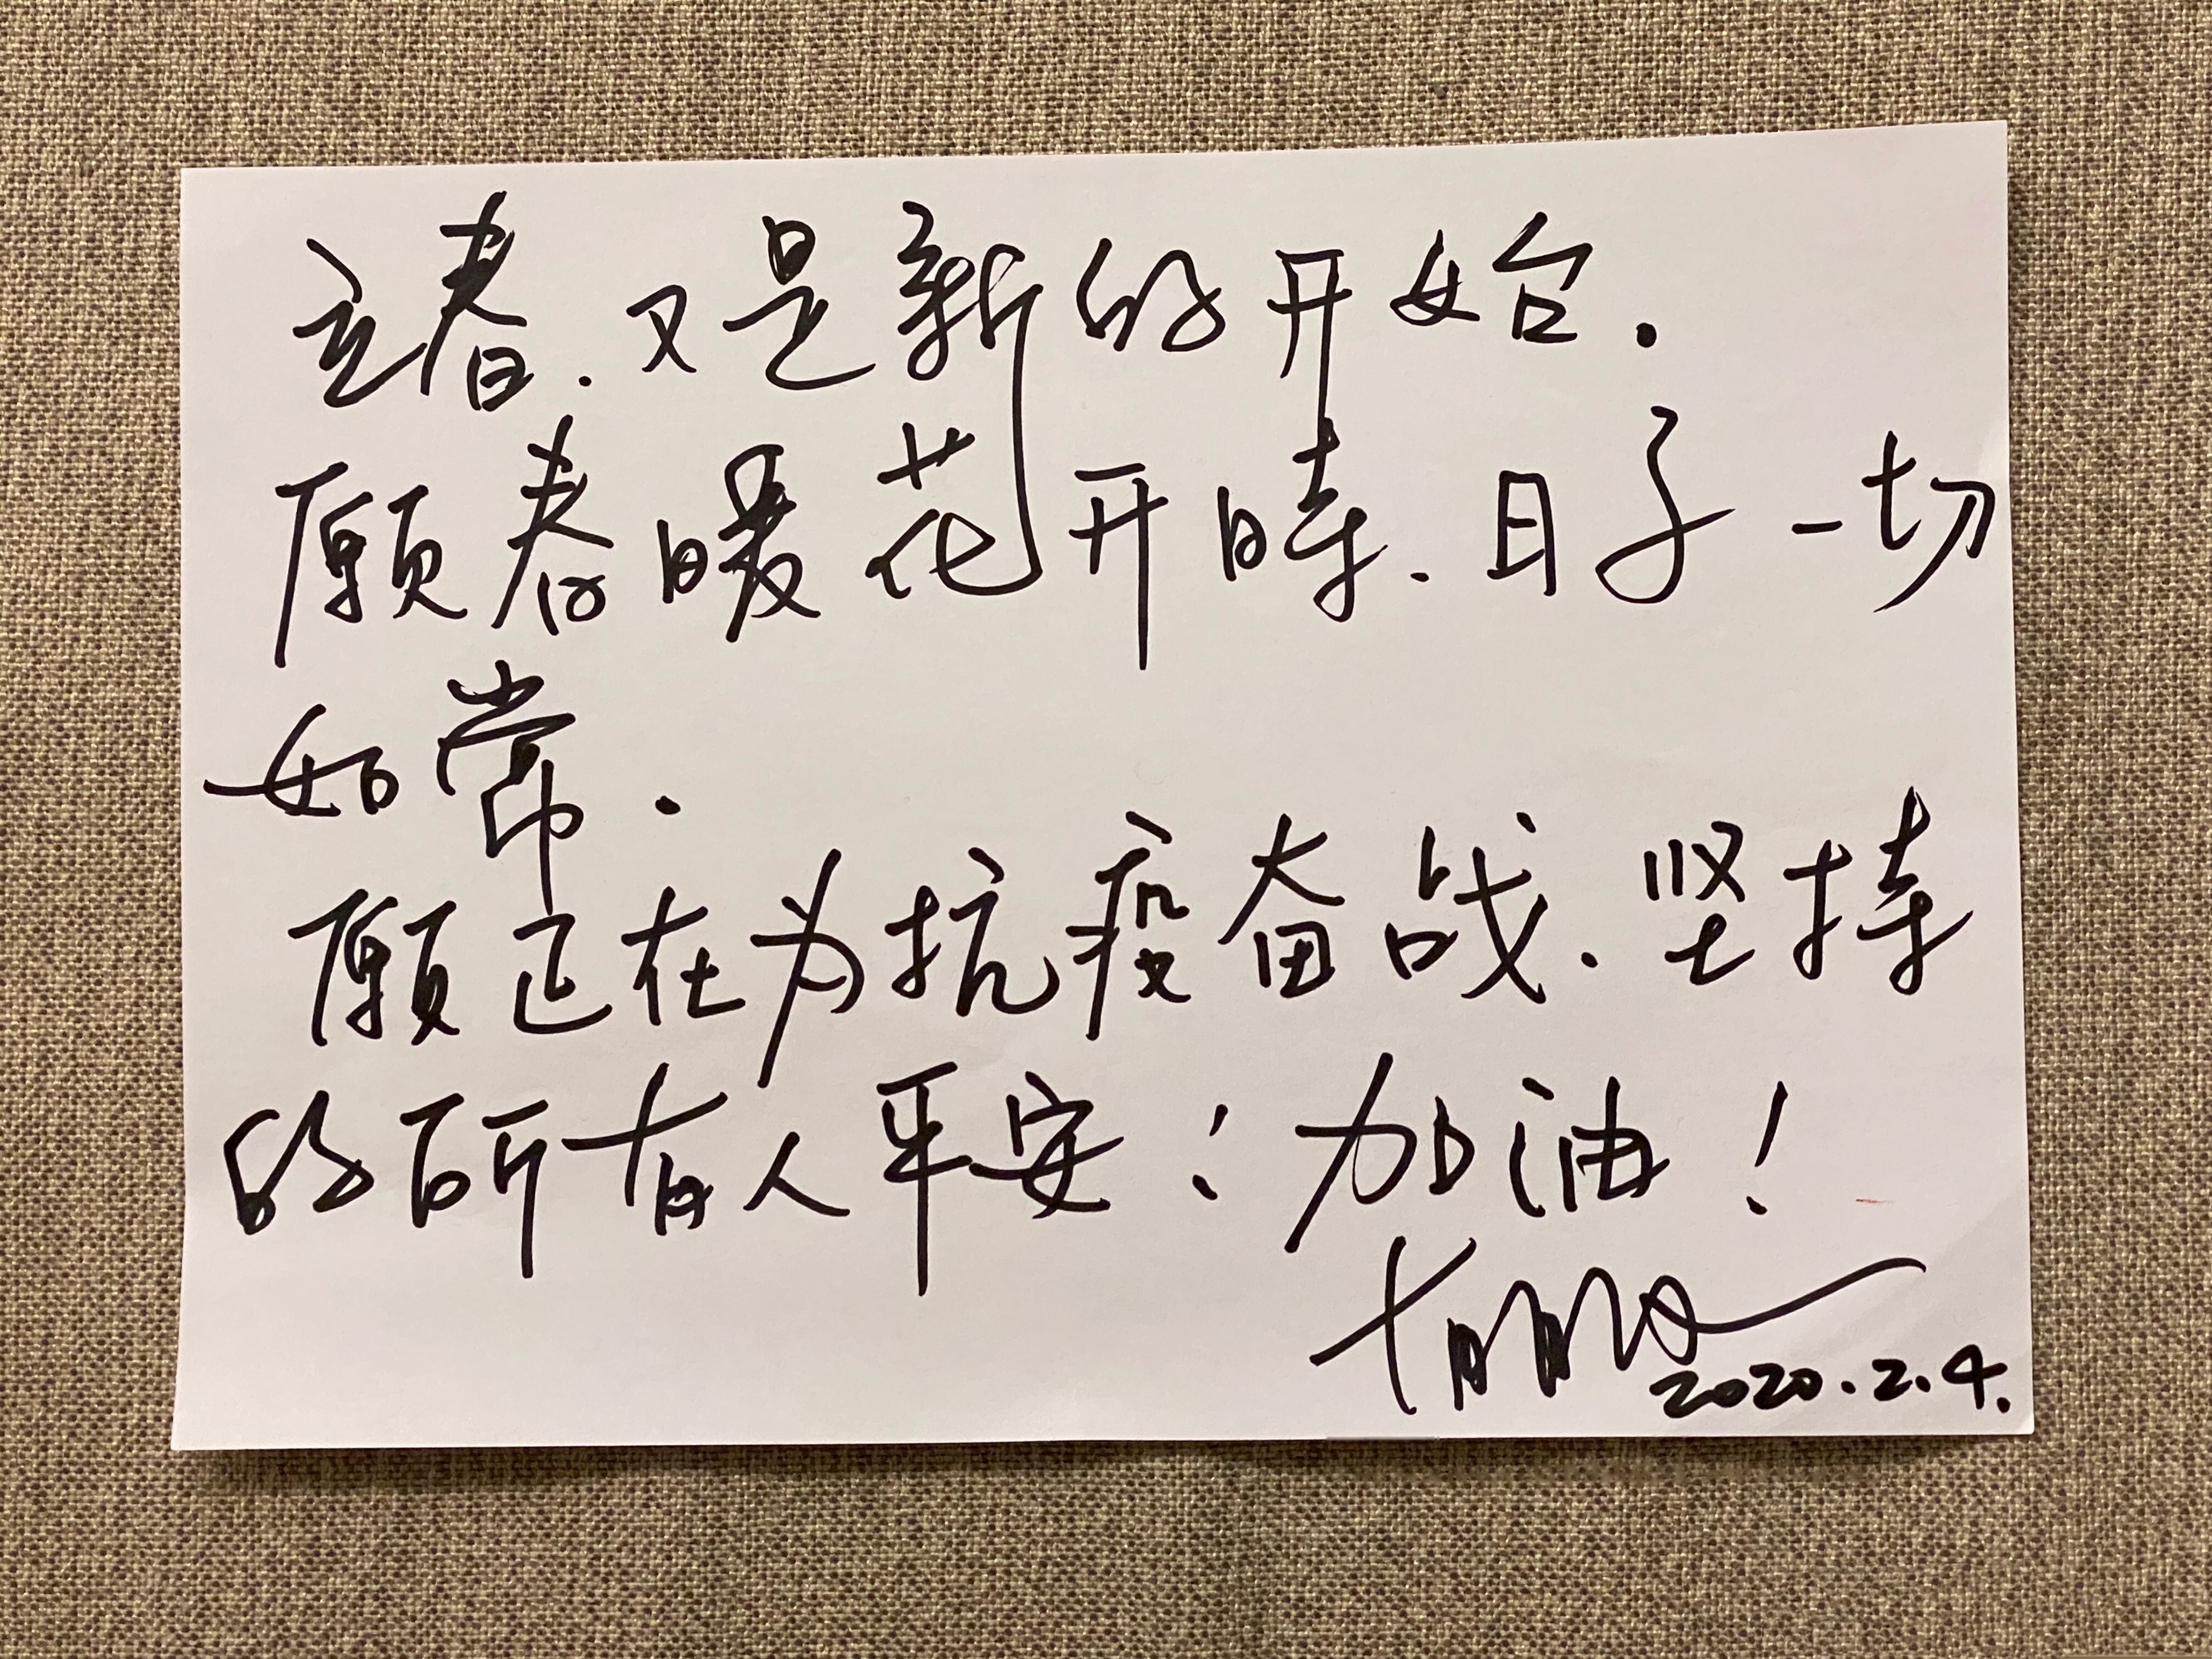 立春.又是新的开始.
愿春暖花开時.日子一切
如常.
愿正在为抗疫奋战.坚持
的所有人平安!加油!
2020.2.4.